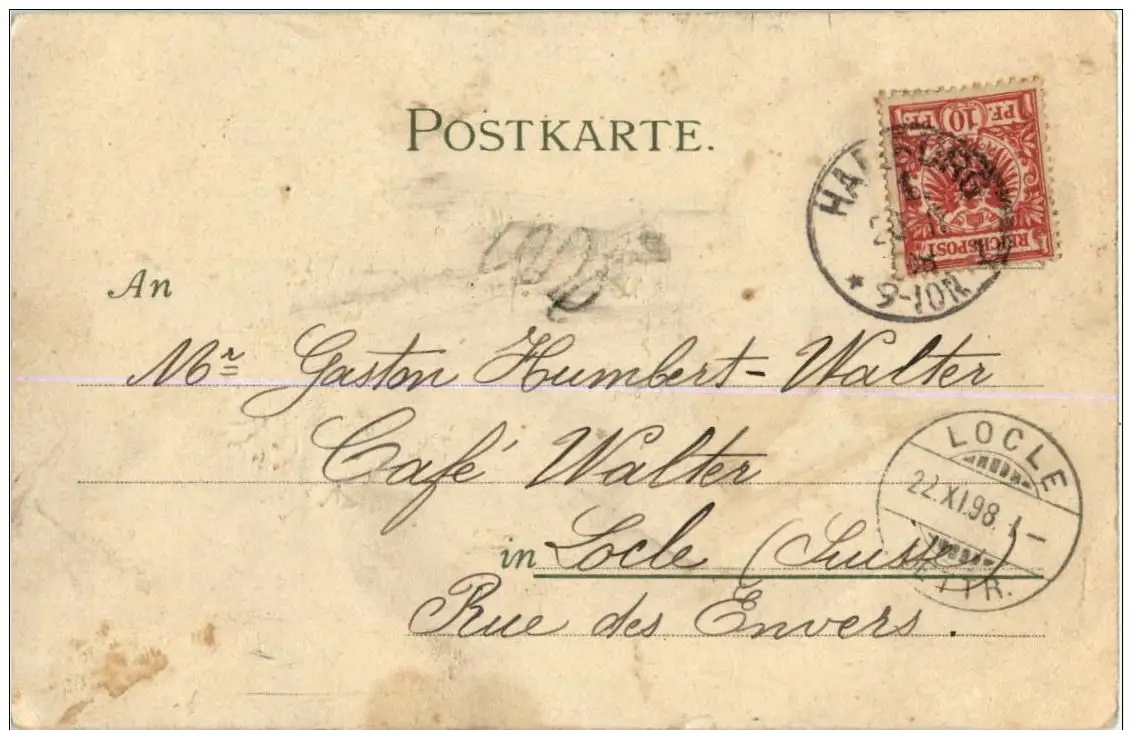 POSTKARTE.
10
PF. PF.
REICHSPOST
HAMBURG
1
* 9-10N.
An
Mr Gaston Humbert-Walter
Café Walter
LOCLE
22.XI.98. 1
LETTR.
in Locle (Suisse)
Rue des Envers.